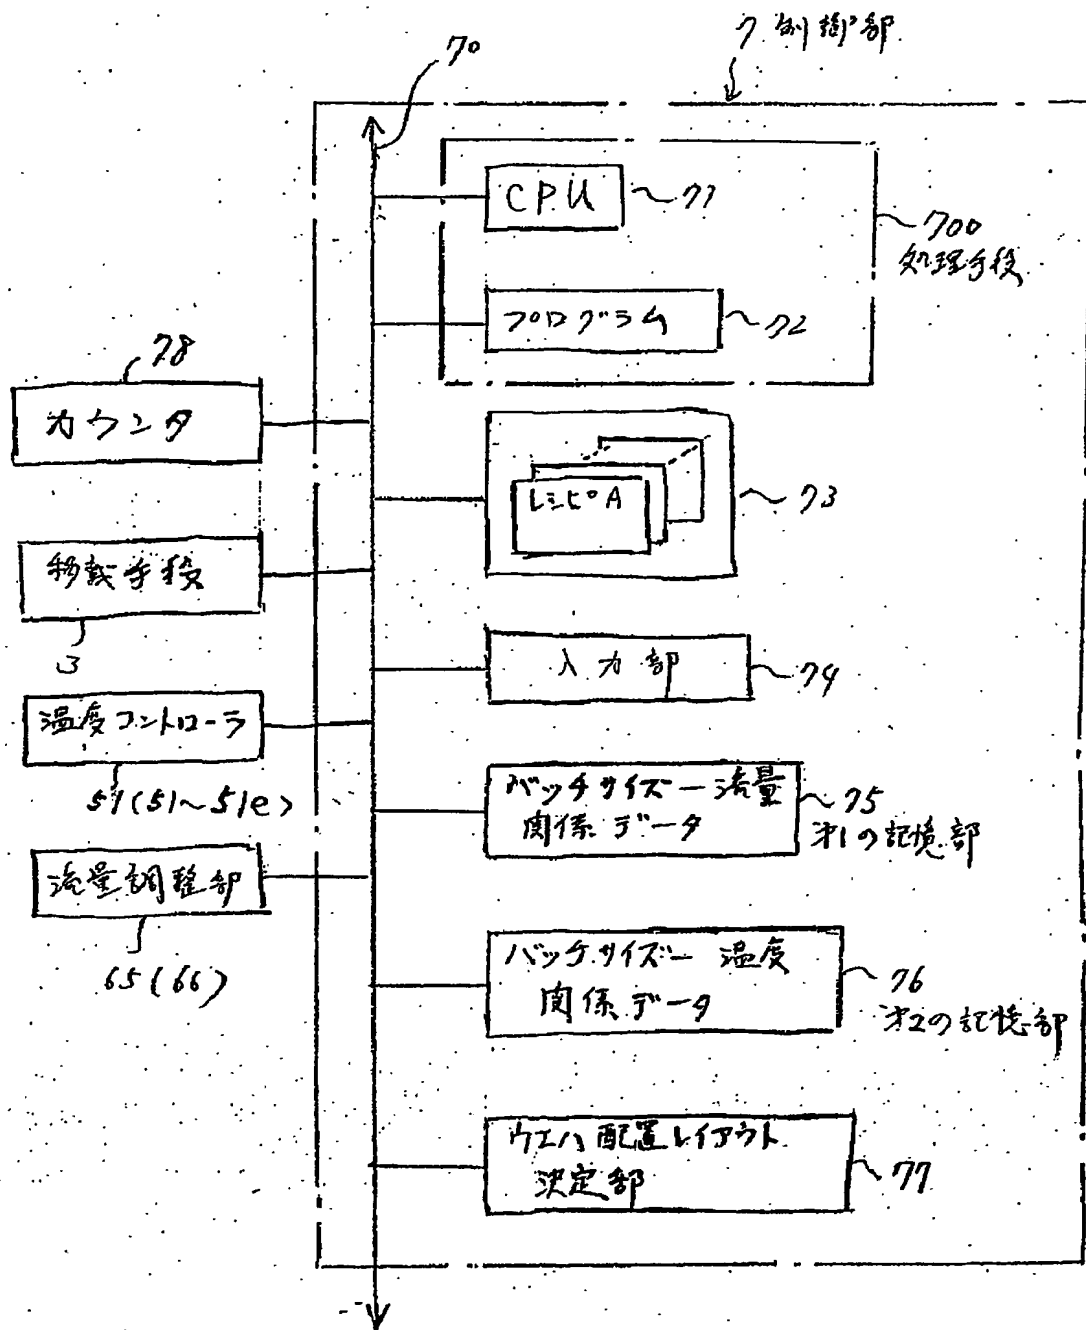 70
7 制御部
CPU
71
700
処理手段
プログラム
72
78
カウンタ
レシピA
73
移載手段
3
入力部
74
温度コントローラ
51(51~51e)
バッチサイズー流量
関係データ
75
才1の記憶部
流量調整部
65(66)
バッチサイズー温度
関係データ
76
才2の記憶部
ウエハ配置レイアウト
決定部
77